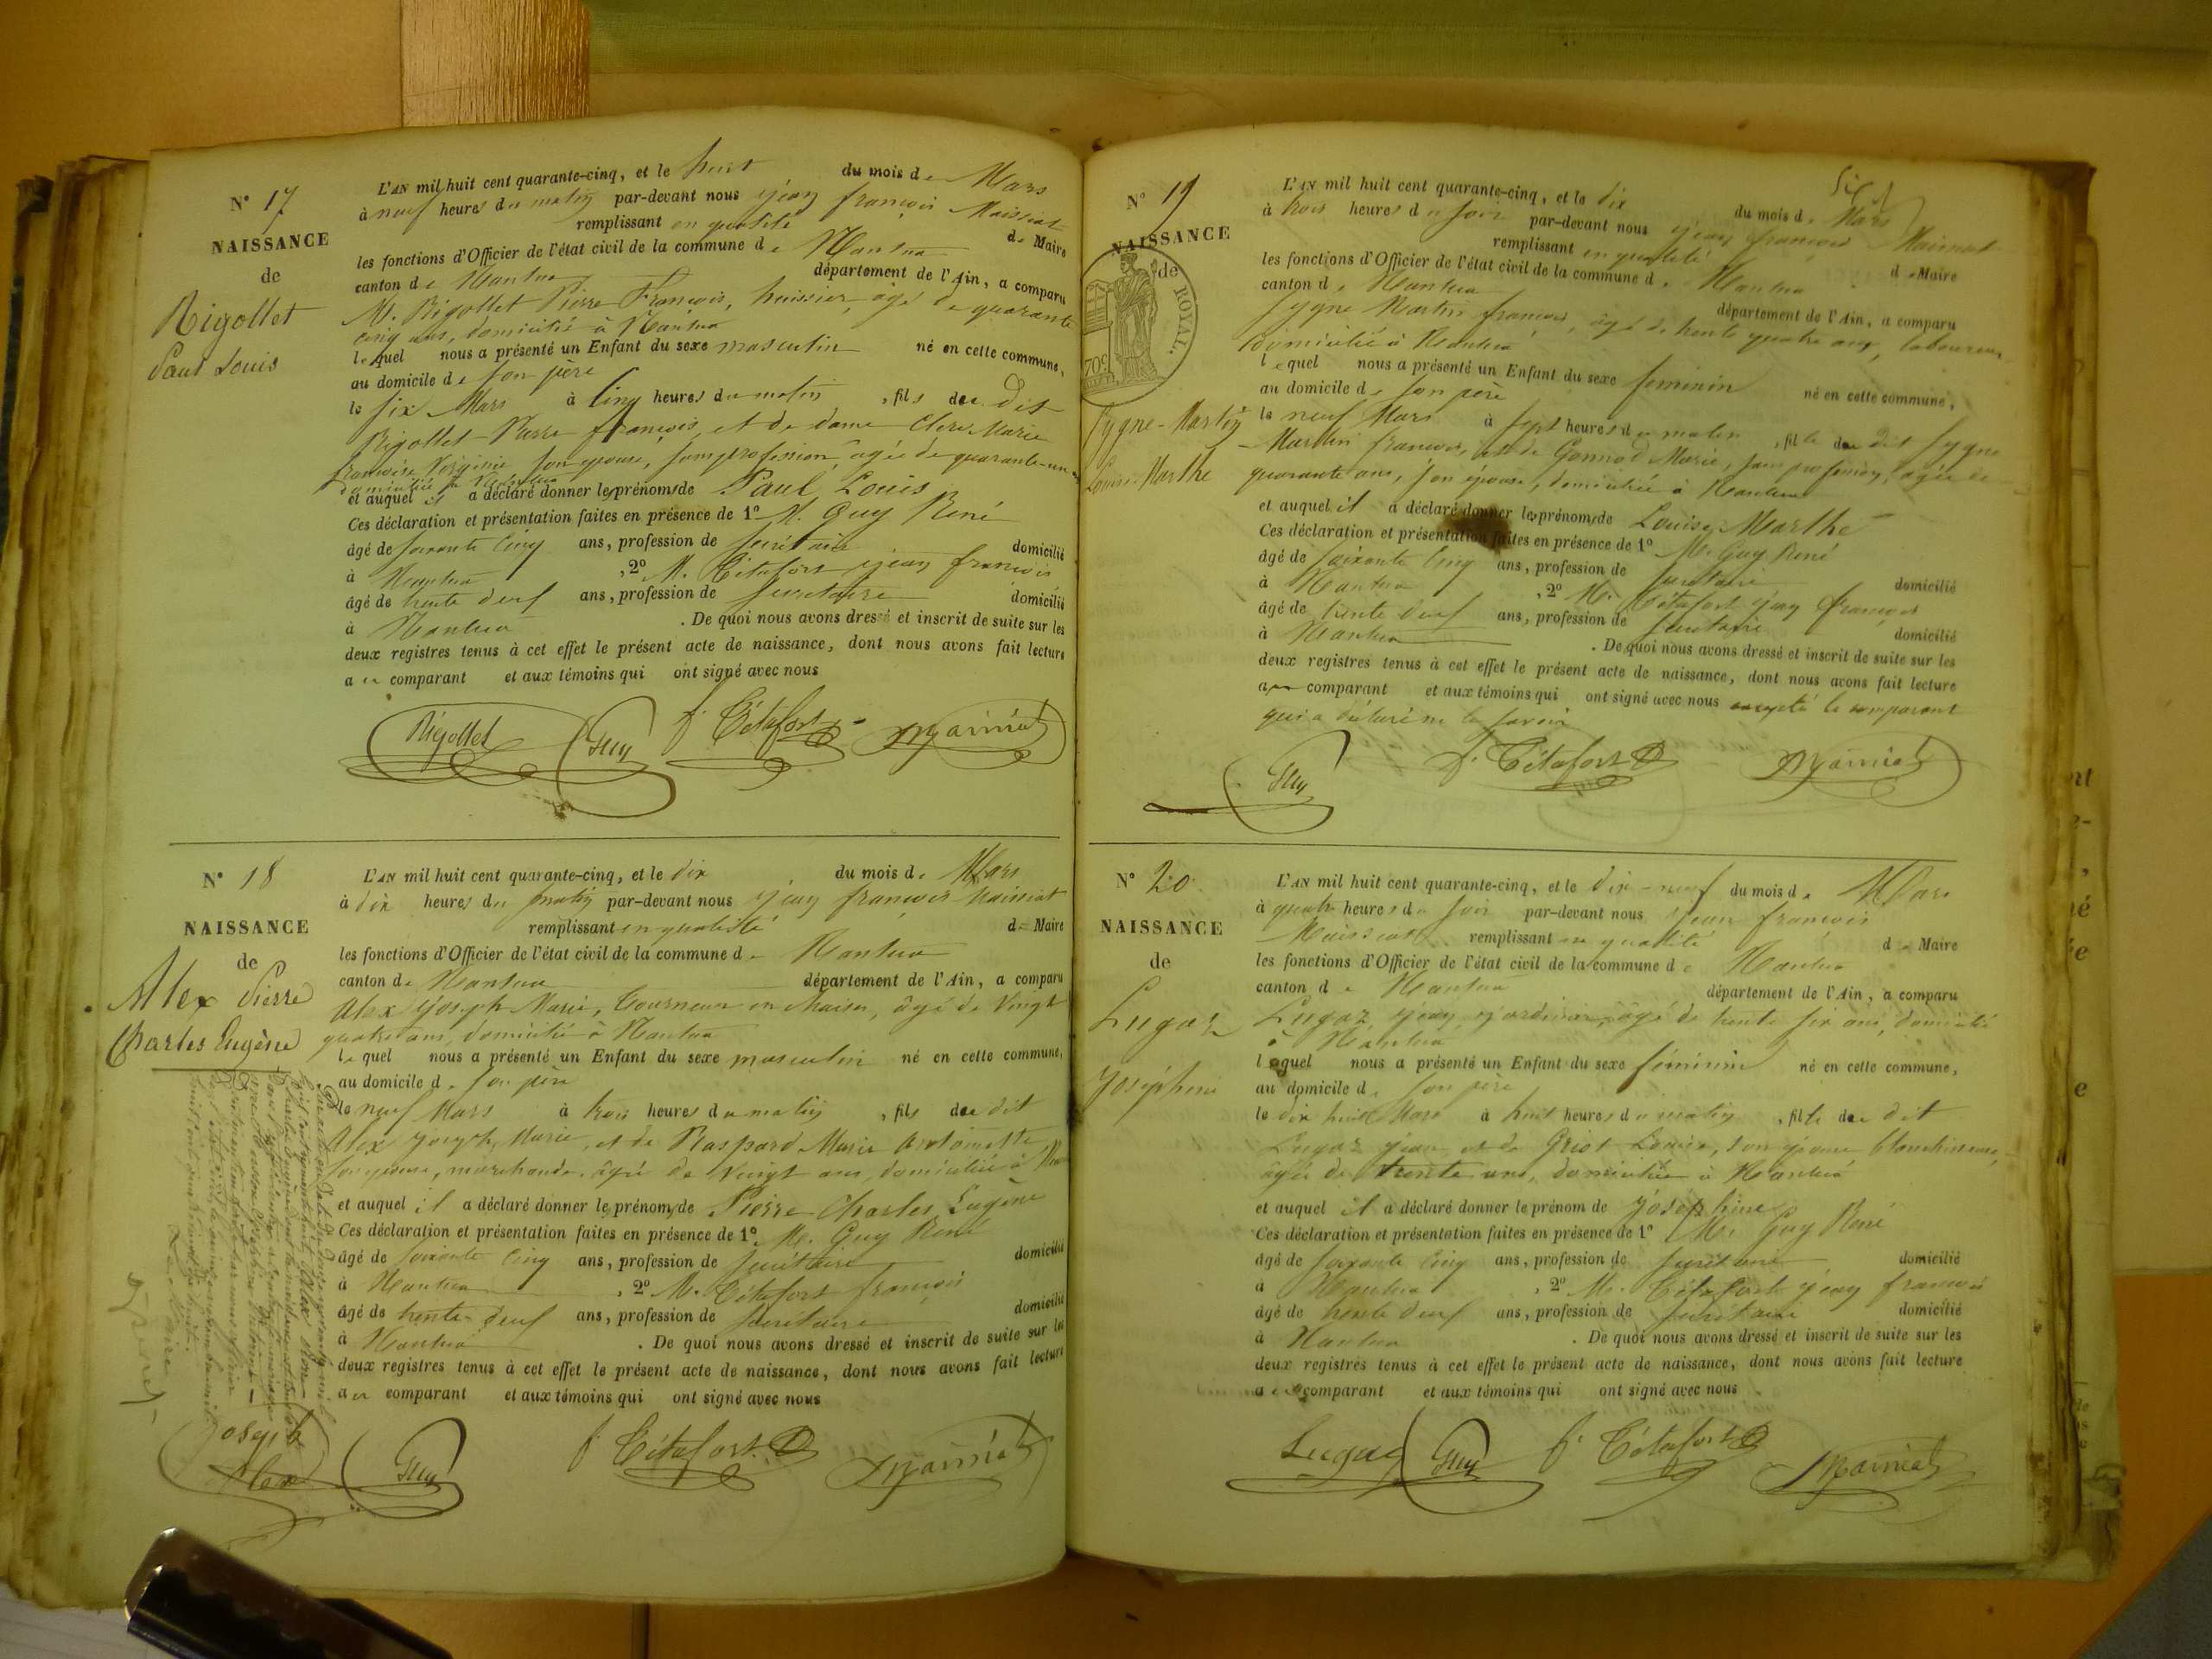 N° 17
NAISSANCE
de
Rigollet
Paul Louis
L'AN mil huit cent quarante-cinq, et le huit du mois de Mars
à neuf heures du matin par-devant nous jean françois Maissiat
remplissant en qualité de Maire
les fonctions d'Officier de l'état civil de la commune de Nantua
canton de Nantua département de l'Ain, a comparu
M. Rigollet Pierre François, huissier, âgé de quarante
cinq ans, domicilié à Nantua
lequel nous a présenté un Enfant du sexe masculin né en cette commune,
au domicile de son père
le six Mars à cinq heures du matin, fils de dit
Rigollet Pierre françois, et de dame Clerc Marie
françoise Virginie son épouse, sans profession, âgée de quarante-un ans
domiciliée à Nantua
et auquel il a déclaré donner les prénoms de Paul Louis
Ces déclaration et présentation faites en présence de 1° M. Guy René
âgé de soixante cinq ans, profession de secrétaire domicilié
à Nantua, 2° M. Cétafort jean françois
âgé de trente deux ans, profession de secrétaire domicilié
à Nantua. De quoi nous avons dressé et inscrit de suite sur les
deux registres tenus à cet effet le présent acte de naissance, dont nous avons fait lecture
au comparant et aux témoins qui ont signé avec nous
Rigollet Guy f. Cétafort Maissiat
N° 18
NAISSANCE
de
Alex Pierre
Charles Eugène
L'AN mil huit cent quarante-cinq, et le dix du mois de Mars
à dix heures du matin par-devant nous jean françois Maissiat
remplissant en qualité de Maire
les fonctions d'Officier de l'état civil de la commune de Nantua
canton de Nantua département de l'Ain, a comparu
Alex joseph Marie, tourneur en chaises, âgé de vingt
quatre ans, domicilié à Nantua
lequel nous a présenté un Enfant du sexe masculin né en cette commune,
au domicile de son père
le neuf Mars à trois heures du matin, fils de dit
Alex joseph Marie, et de Raspard Marie Antoinette
son épouse, marchande, âgée de vingt ans, domiciliée à
et auquel il a déclaré donner le prénom de Pierre Charles Eugène
Ces déclaration et présentation faites en présence de 1° M. Guy René
âgé de soixante cinq ans, profession de secrétaire domicilié
à Nantua, 2° M. Cétafort françois
âgé de trente deux ans, profession de secrétaire domicilié
à Nantua. De quoi nous avons dressé et inscrit de suite sur les
deux registres tenus à cet effet le présent acte de naissance, dont nous avons fait lecture
au comparant et aux témoins qui ont signé avec nous
Joseph Alex Guy f. Cétafort Maissiat
N° 19
NAISSANCE
de
ROYAL.
70c
Sygne-Martin
Louise-Marthe
L'AN mil huit cent quarante-cinq, et le dix du mois de Mars
à trois heures du soir par-devant nous jean françois Maissiat
remplissant en qualité de Maire
les fonctions d'Officier de l'état civil de la commune de Nantua
canton de Nantua département de l'Ain, a comparu
Sygne Martin françois, âgé de trente quatre ans, laboureur
domicilié à Nantua
lequel nous a présenté un Enfant du sexe feminin né en cette commune,
au domicile de son père
le neuf Mars à sept heures du matin, fille de dit Sygne
Martin françois, et de Gonnod Marie, sans profession, âgée de
quarante ans, son épouse, domiciliée à Nantua
et auquel il a déclaré donner les prénoms de Louise Marthe
Ces déclaration et présentation faites en présence de 1° M. Guy René
âgé de soixante cinq ans, profession de secrétaire domicilié
à Nantua, 2° M. Cétafort jean françois
âgé de trente deux ans, profession de secrétaire domicilié
à Nantua. De quoi nous avons dressé et inscrit de suite sur les
deux registres tenus à cet effet le présent acte de naissance, dont nous avons fait lecture
au comparant et aux témoins qui ont signé avec nous excepté le comparant
qui a déclaré ne le savoir
Guy f. Cétafort Maissiat
N° 20
NAISSANCE
de
Lugaz
Joséphine
L'AN mil huit cent quarante-cinq, et le dix-neuf du mois de Mars
à quatre heures du soir par-devant nous jean françois
Maissiat remplissant en qualité de Maire
les fonctions d'Officier de l'état civil de la commune de Nantua
canton de Nantua département de l'Ain, a comparu
Lugaz jean, jardinier, âgé de trente six ans, domicilié
à Nantua
lequel nous a présenté un Enfant du sexe féminin né en cette commune,
au domicile de son père
le dix huit Mars à huit heures du matin, fille de dit
Lugaz jean et de Griot Louise, son épouse blanchisseuse,
âgée de trente ans, domiciliée à Nantua
et auquel il a déclaré donner le prénom de joséphine
Ces déclaration et présentation faites en présence de 1° M. Guy René
âgé de soixante cinq ans, profession de secrétaire domicilié
à Nantua, 2° M. Cétafort jean françois
âgé de trente deux ans, profession de secrétaire domicilié
à Nantua. De quoi nous avons dressé et inscrit de suite sur les
deux registres tenus à cet effet le présent acte de naissance, dont nous avons fait lecture
au comparant et aux témoins qui ont signé avec nous
Lugaz Guy f. Cétafort Maissiat